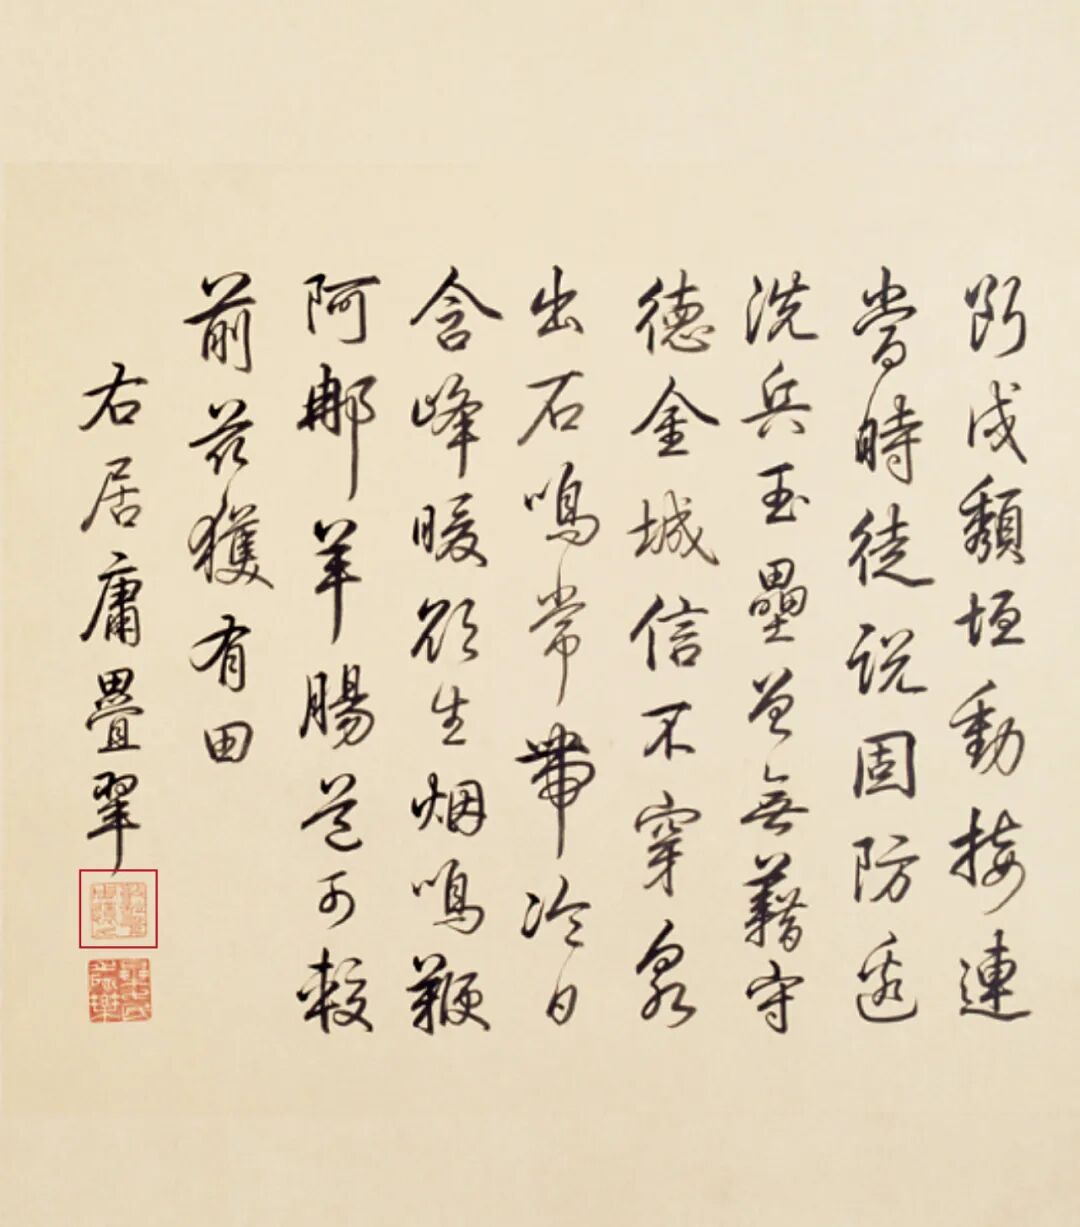 斷戍頹垣動接連
當時徒説固防邊
洗兵玉壘曽無藉守
德金城信不穿泉
出石鳴常帶冷日
含峰暖欲生烟鳴鞭
阿那羊腸道可較
前兹獲有田
右居庸疊翠